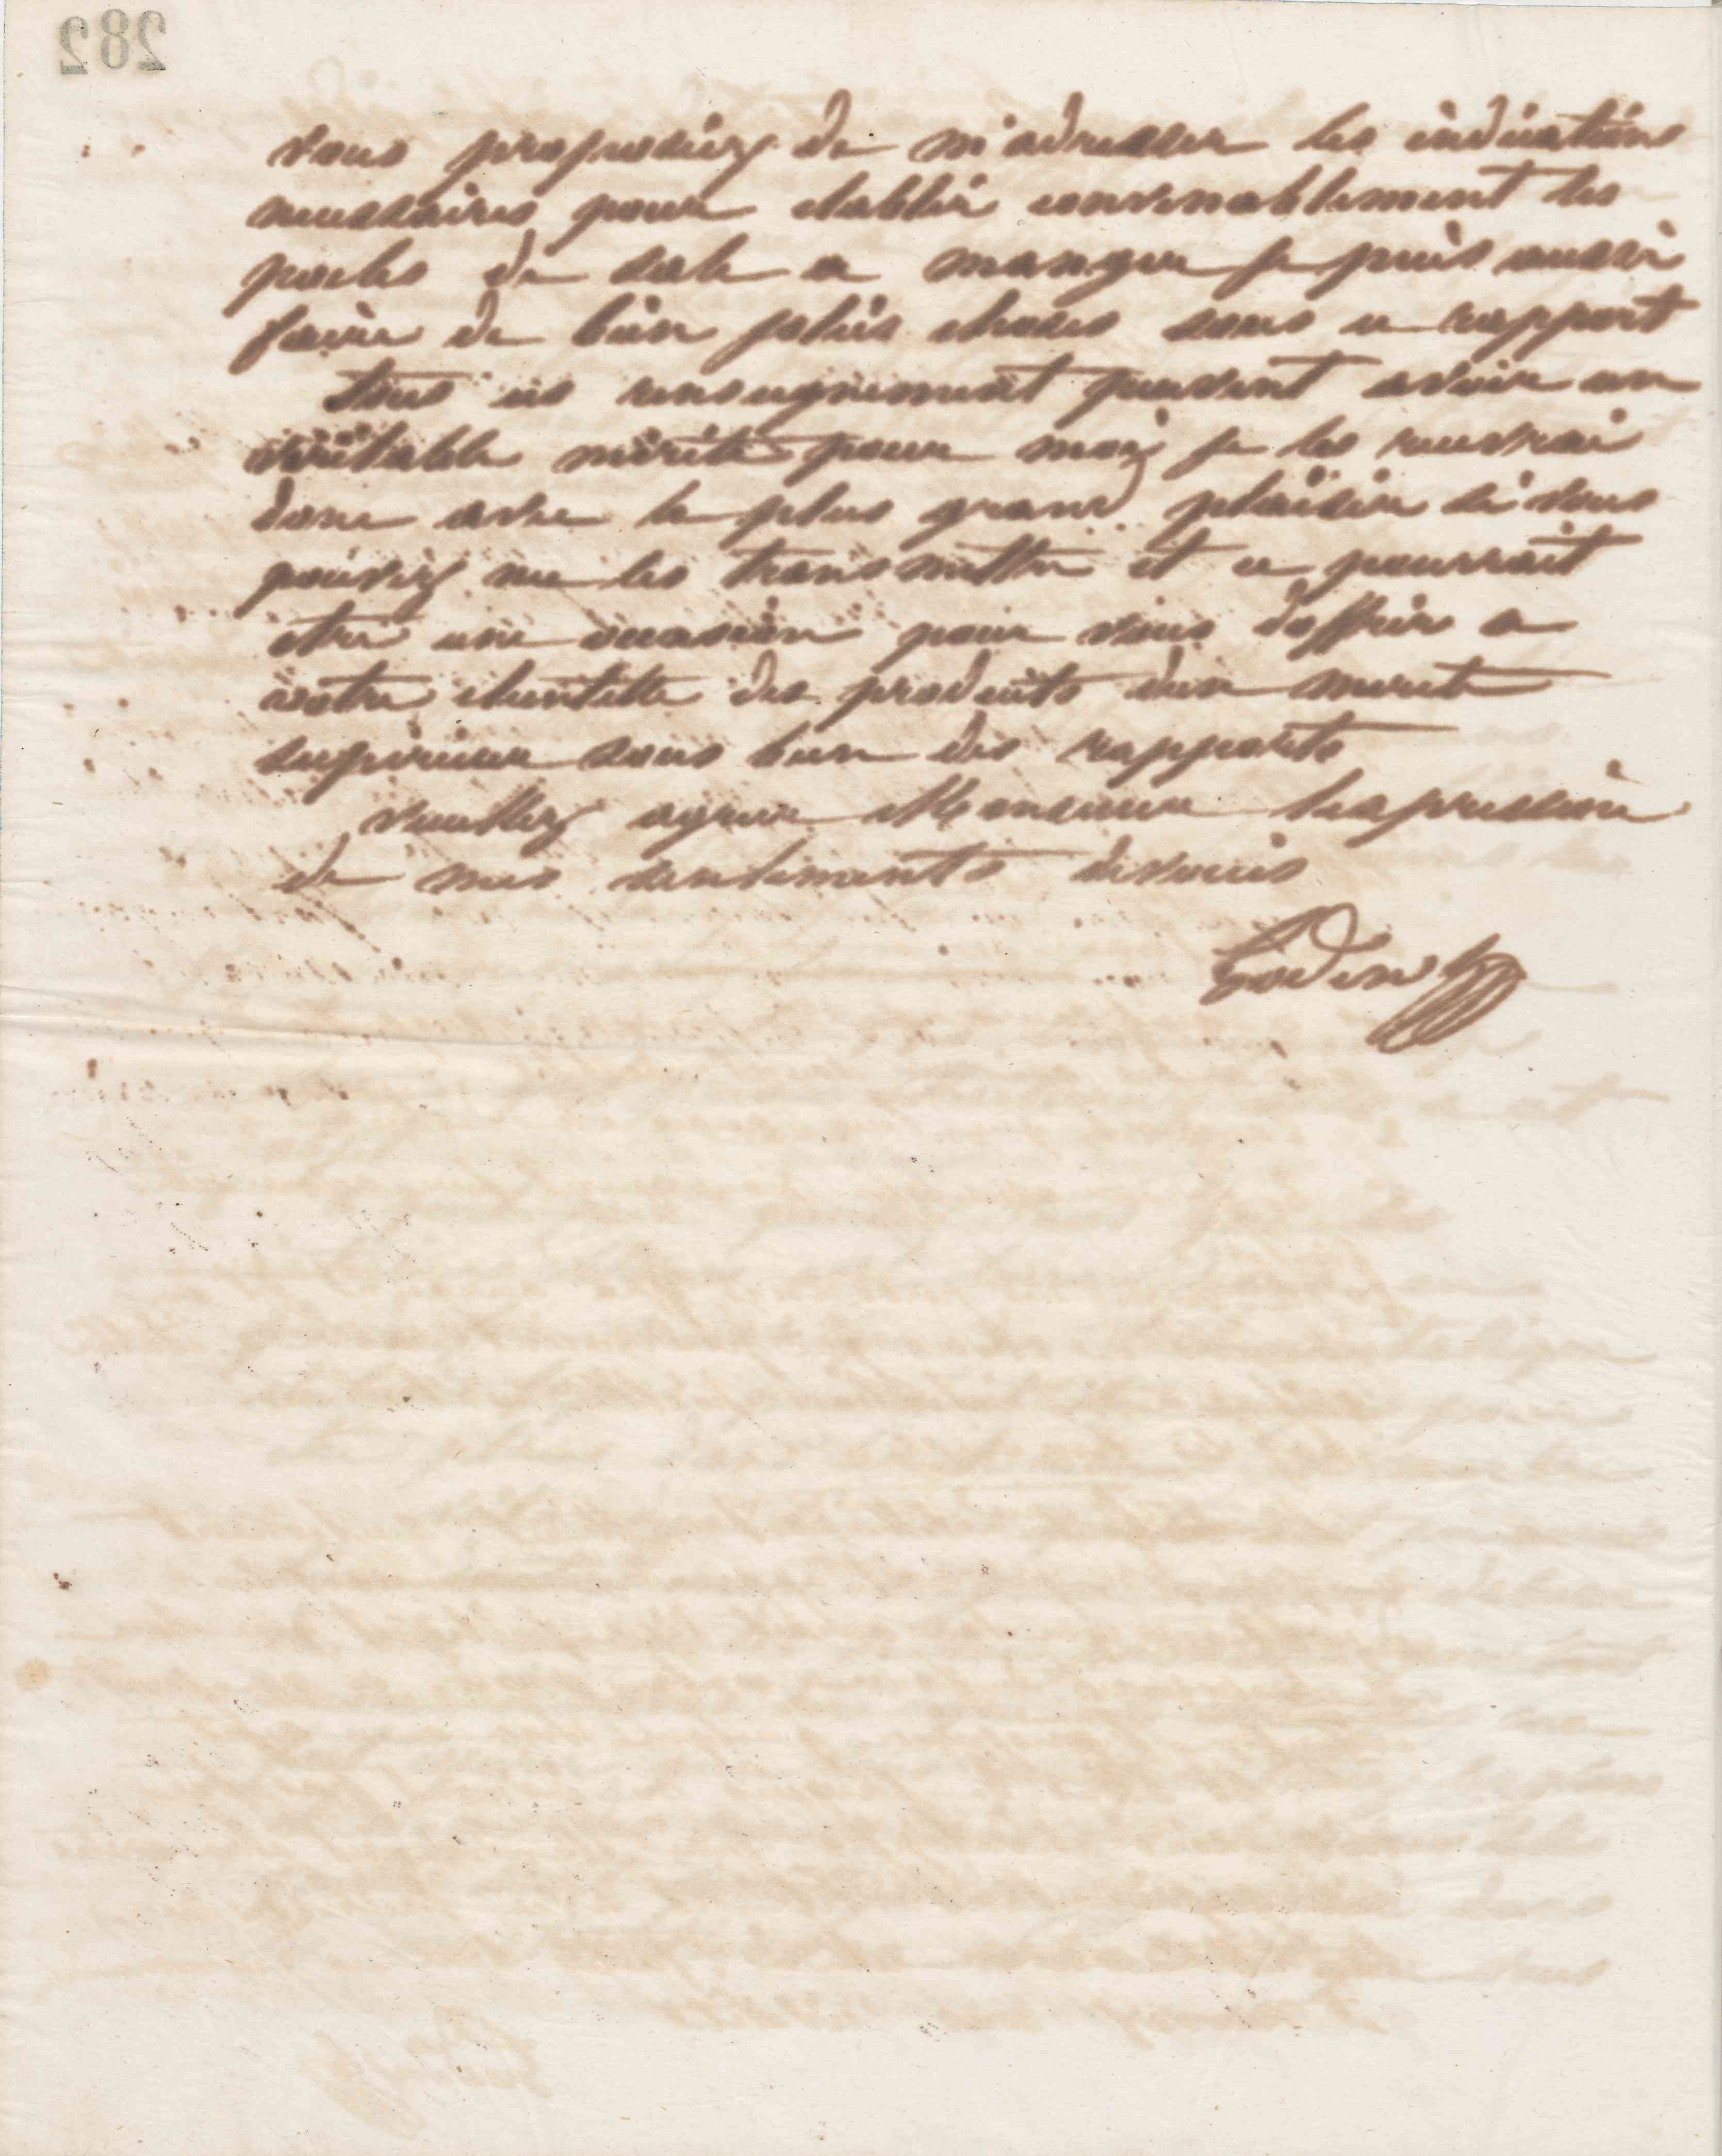 282
vous proposiez de m'adresser les indications
necessaires pour etablir convenablement les
poeles de sale a manger je puis aussi
faire de bien jolies choses sous ce rapport
Tous ces renseignement peuvent avoir un
véritable mérite pour moi je les recevrai
donc avec le plus grand plaisir si vous
pouviez me les transmettre et ce pourrait
etre une occasion pour vous doffrir a
votre clientelle des produits dun merite
superieur sous bien des rapports
Veuillez agreer Monsieur lexpression
de mes sentiments devoués
Godin